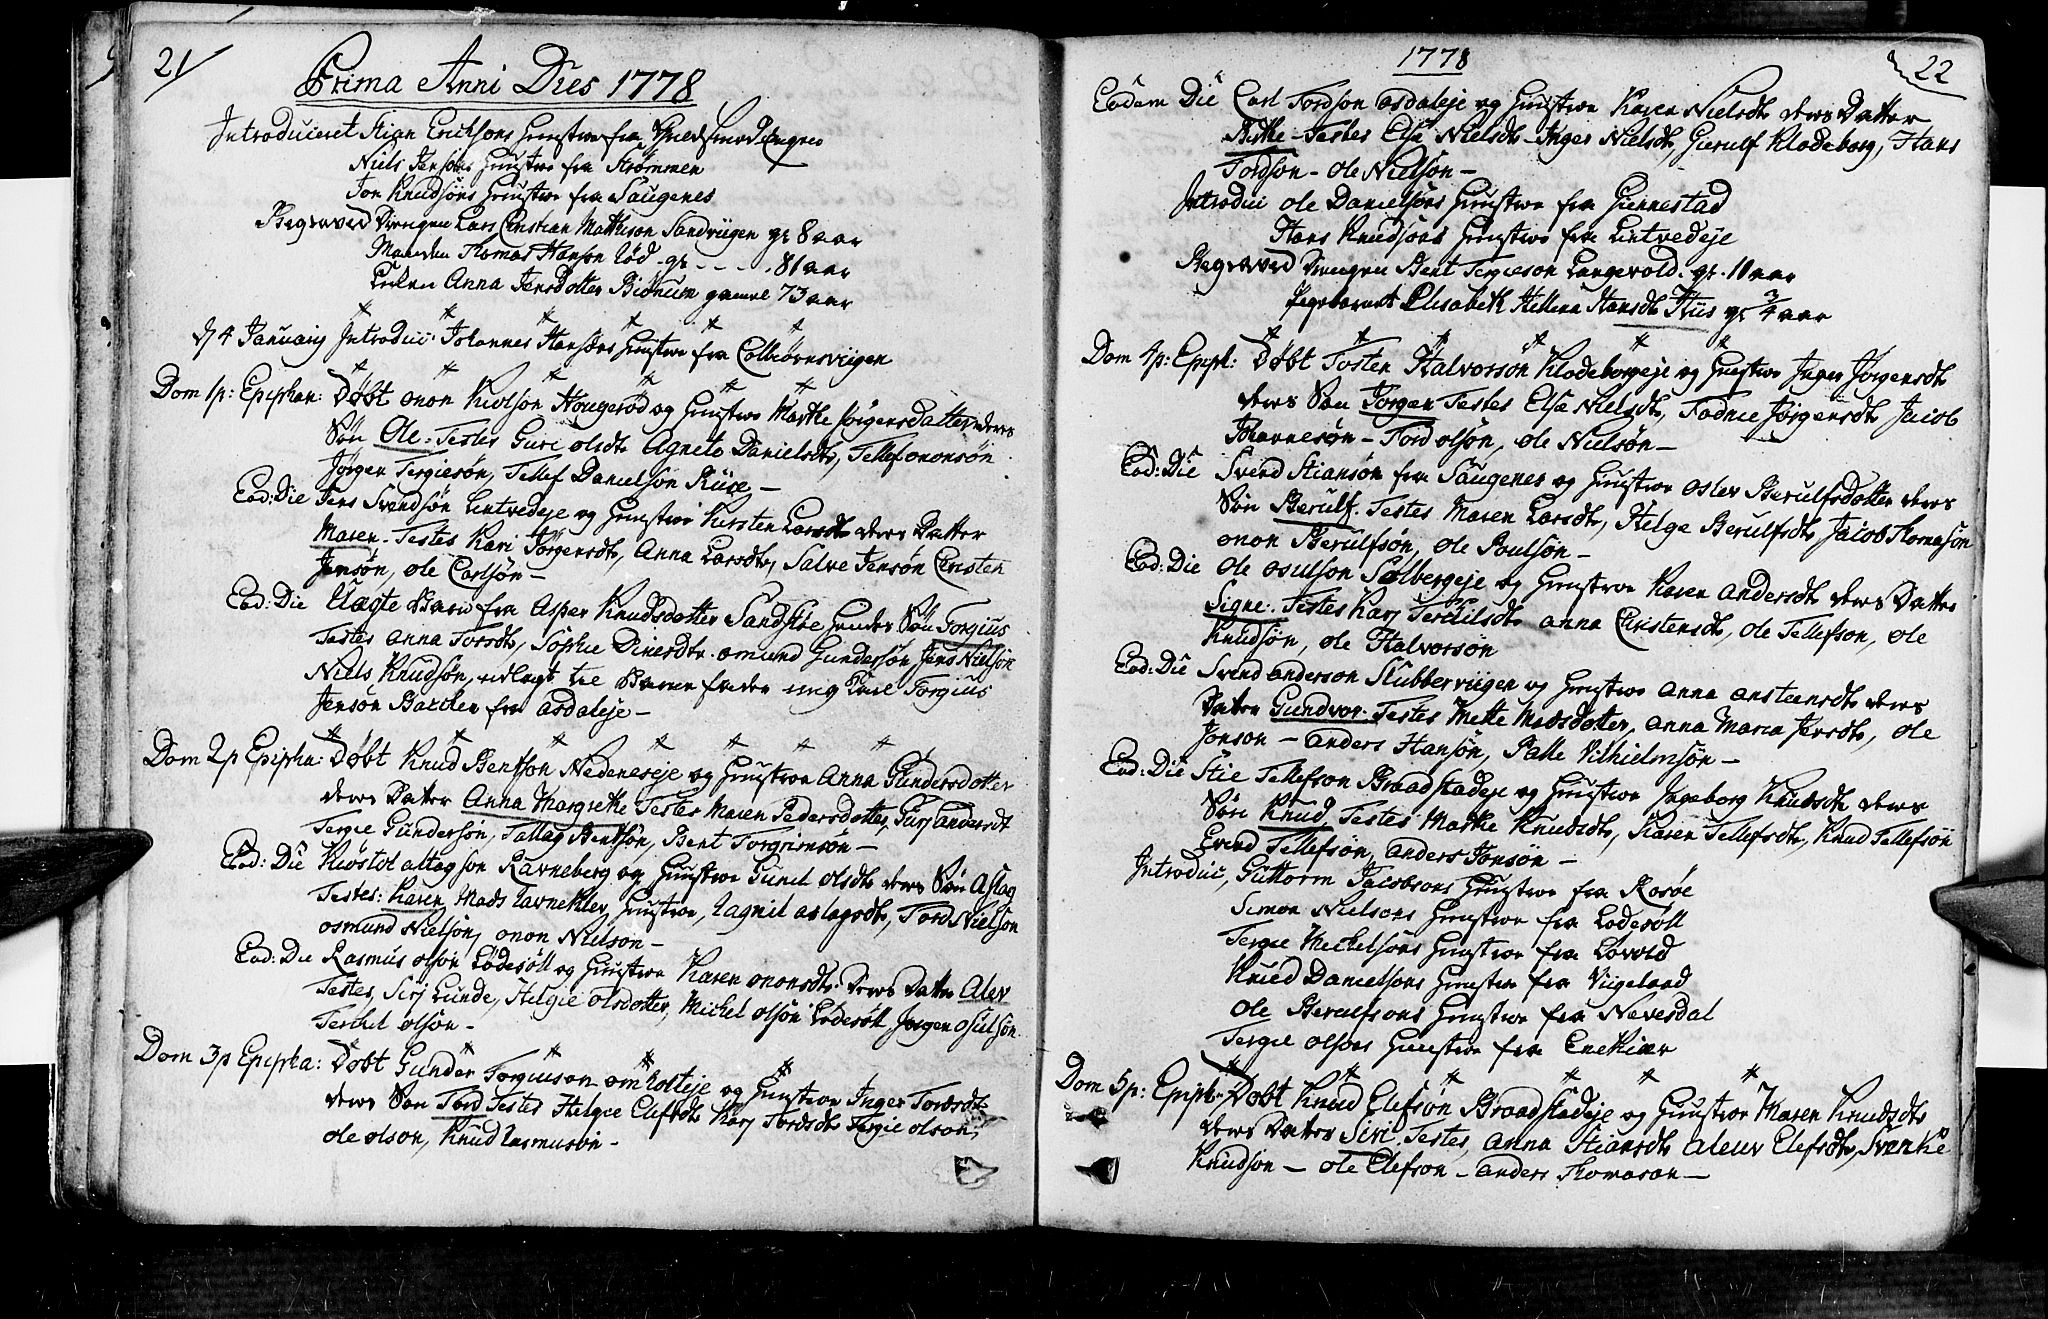 21
Prima Anni Dies 1778
Introduceret Stian Ericksøns Hustrue fra
Niels Jensøns Hustrue fra Strømmen
Jon Knudsøns Hustrue fra Saugenes
Begraved Drengen Lars Christian Mathison Sandviigen gl 8 aar
Manden Thomas Hanson Lød gl - - - - 81 aar
Enken Anna Jensdotter Biønum gamel 73 aar
d/4 January Introduc: Johannes Hansøns Hustrue fra Colbiørnsviigen
Dom 1p: Epiphan: Døbt onon Kielson Hougerød og Hustrue Marthe Jørgensdatter deres
Søn Ole. Testes Guri olsdt Agnete Danielsdt, Tellef ononsøn
Jørgen Tergiesøn, Tellef Danielson Rüse -
Eod: Die Jens Svendsøn Lintvedeje og Hustrue Kirsten Larsdt deres Datter
Maren. Testes Kari Jørgensdt, Anna Larsdt, Salve Jensøn Christen
Jensøn, ole Carlsøn -
Eod: Die Uægte Barn fra Asper Knudsdotter Sandstøe hendes Søn Torgius
Testes anna Torsdt, Sophie Diresdtr. omund Gundersøn Jens Nielsøn
Niels Knudsøn, udlagt til Barne fader ung Karl Torgius
Jensøn Barcken fra asdaleje -
Dom 2p Epipha: Døbt Knud Bentsøn Nedeneseje og Hustrue Anna Gundersdotter
deres Dater Anna Margrethe Testes Maren Pedersdotter, Gurj Andersdt
Tergie Gundersøn, Tallag Bentsøn, Bent Torgrimsøn -
Eod: Die Kiøstol altagson Ravneberg og Hustrue Gunil olsdt deres Søn Aslag
Testes: Karen Mads Tavnekler Hustrue, Tagnil aslagsdt, Tord Nielsøn
osmund Nielsøn, onon Nielson -
Eod: Die Rasmus olsøn Lødesøll og Hustrue Karen ononsdt: Deres Datter Alev
Testes, Sirj Lunde, Helgie Olsdotter, Michel olsøn Lødesøll, Jørgen osulsøn
Terchel olsøn -
Dom 3p Epipha: Døbt Gunder Torgiuson omholteje og Hustrue Inger Tordsdt
deres Søn Tord Testes Helgie Elefsdt Karj Tordsdt Tergie olson,
ole olson, Knud Rasmusøn -
1778
22
Eodem Die Carl Tordson asdaleje og Hustrue Karen Nielsdt deres Datter
Birthe - Testes Else Nielsdt - Inger Nielsdt, Gierulf Klodeborg, Hans
Tordson - ole Nielsøn -
Introduc ole Danielsøns Hustrue fra Giennestad
Hans Knudsøns Hustrue fra Lintvedeje
Begraved Drengen Bent Tergieson Langevold. gl. 11 aar
Pigebarnet Elisabeth Hellena Hansdt Hüs gl 3/4 aar
Dom 4p: Epiph: Døbt Tosten Halvorsøn Klodeborgeje og Hustrue Inger Jørgensdt
deres Søn Jørgen Testes Else Nielsdt, Tadnie Jørgensdt Jacob
Johannesøn - Tord olsøn, ole Nielsøn -
Eod: Die Svend Stiansøn fra Saugenes og Hustrue oslev Berulfsdotter deres
Søn Berulf. Testes Maren Larsdt, Helge Berulfsdt Jacob Thomasøn
onon Berulfsøn, ole Poulsøn -
Eod: Die ole osulson Sølbergeje og Hustrue Karen Andersdt deres Datter
Signe. Testes Karj Terchilsdt anna Christensdt, ole Tellefson, ole
Knudsøn, ole Halvorsøn
Eod: Die Svend anderson Stubberviigen og Hustrue anna anstensdt deres
Dater Gundvor. Testes Mette Madsdotter, anna Maria Jensdt, ole
Jonson - anders Hansøn, Palle Vilhielmsøn -
Eod: Die Stie Tellefson Braadstadeje og Hustrue Ingeborg Knudsdt deres
Søn Knud, Testes Marthe Knudsdt, Karen Tellefsdt, Knud Tellefsøn
Evend Tellefsøn, anders Jonsøn -
Introduc, Guttorm Jacobsøns Hustrue fra Rosøe
Simon Nielsøns Hustrue fra Lødesøll
Tergie Michelsøns Hustrue fra Løvold
Knud Danielsøns Hustrue fra Viigeland
Ole Berulfsøns Hustrue fra Neversdal
Tergie olsøns Hustrue fra Enekiær
Dom 5p: Epiph, Døbt Knud Elefsøn Braadstadeje og Hustrue Maren Knudsdt
deres Dater Siri. Testes, Anna Stiansdt Aleur Elefsdt, Svenke
Knudsøn - ole Elefson - anders Thomason -